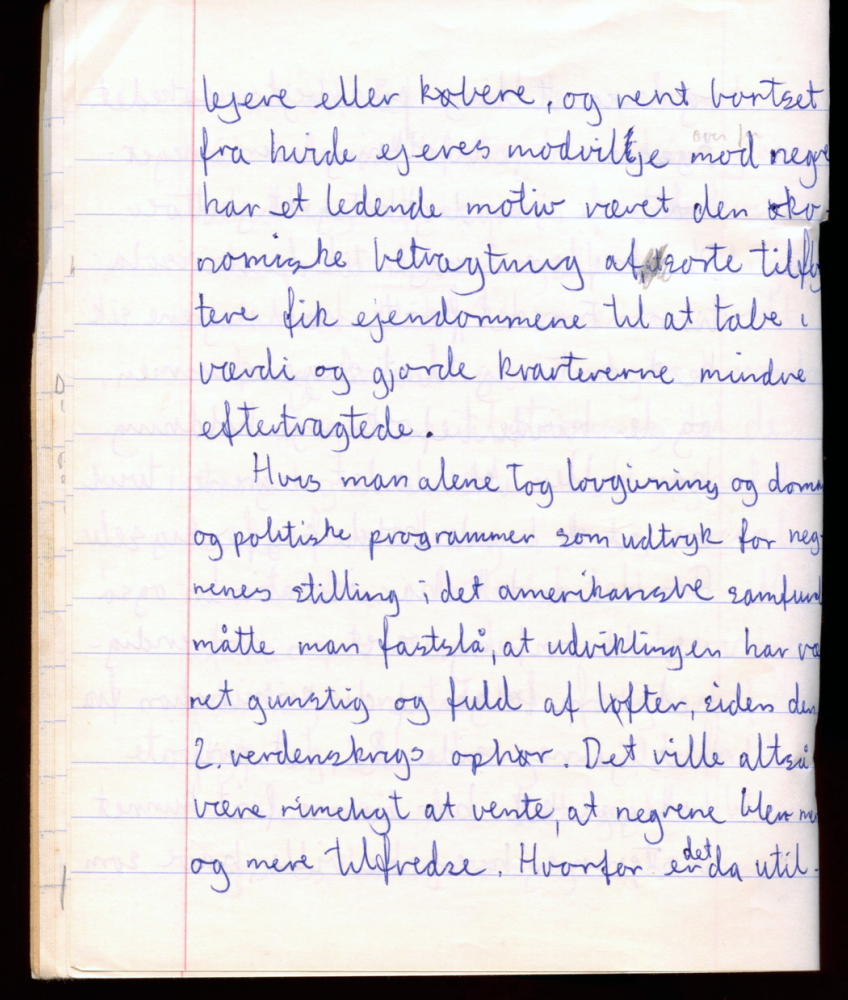 lejere eller købere, og rent bortset
fra hvide ejeres modvilje mod negre
har et ledende motiv været den øko-
nomiske betragtning at, sorte tilfly
tere fik ejendommene til at tabe i
værdi og gjorde kvartererne mindre
eftertragtede.
Hvis man alene tog lovgivning og domm
og politiske programmer som udtryk for neg-
renes stilling i det amerikanske samfund
måtte man fastslå, at udviklingen har væ
ret gunstig og fuld af løfter, siden den
2. verdenskrigs ophør. Det ville altså
være rimeligt at vente, at negrene blev me
og mere tilfredse. Hvorfor er det da util-